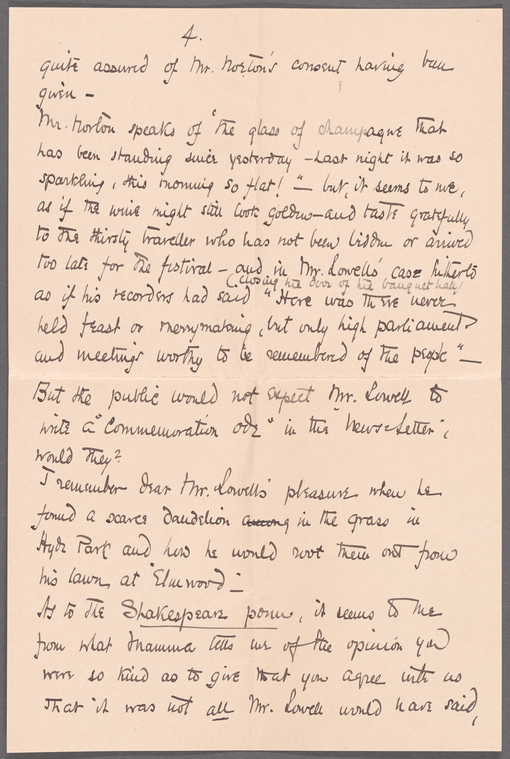 4.
quite assured of Mr. Norton's consent having been
given –
Mr. Norton speaks of "the glass of champagne that
has been standing since yesterday – last night it was so
sparkling, this morning so flat!" – but, it seems to me,
as if the wine might still look golden – and taste gratefully
to the thirsty traveller who has not been bidden or arrived
too late for the festival – and in Mr. Lowell's case hitherto
(closing the door of the banquet hall)
as if his recorders had said "Here was there never
held feast or merrymaking, but only high parliament
and meetings worthy to be remembered of the people" –
But the public would not expect Mr. Lowell to
write a "Commemoration ode" in the "News-Letter",
would they?
I remember dear Mr. Lowell's pleasure when he
found a scarce dandelion among in the grass in
Hyde Park and how he would root them out from
his lawn at "Elmwood" –
As to the Shakespeare poem, it seems to me
from what Mamma tells me of the opinion you
were so kind as to give that you agree with us
that it was not all Mr. Lowell would have said,